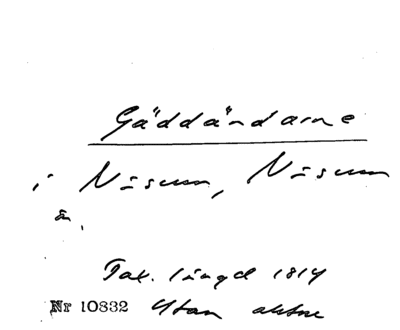 Gäddändarne
i Nisum, Nisum
ön.
Tax. längd 1814
Nr 10832 Utan